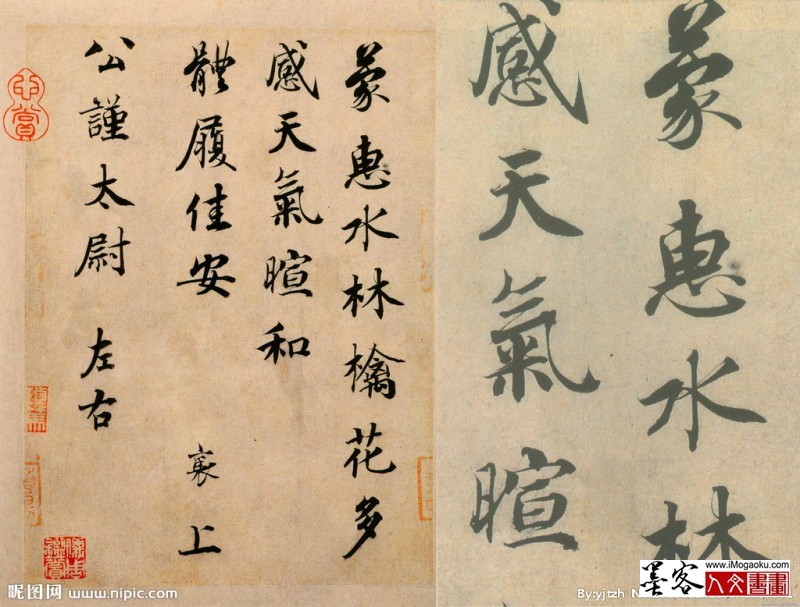 蒙惠水林檎花多
感天氣暄和
體履佳安
襄上
公謹太尉 左右
蒙惠水林
感天氣暄
昵图网 www.nipic.com
By:yjtzh
www.iMogaoku.com
墨客
人文書畫